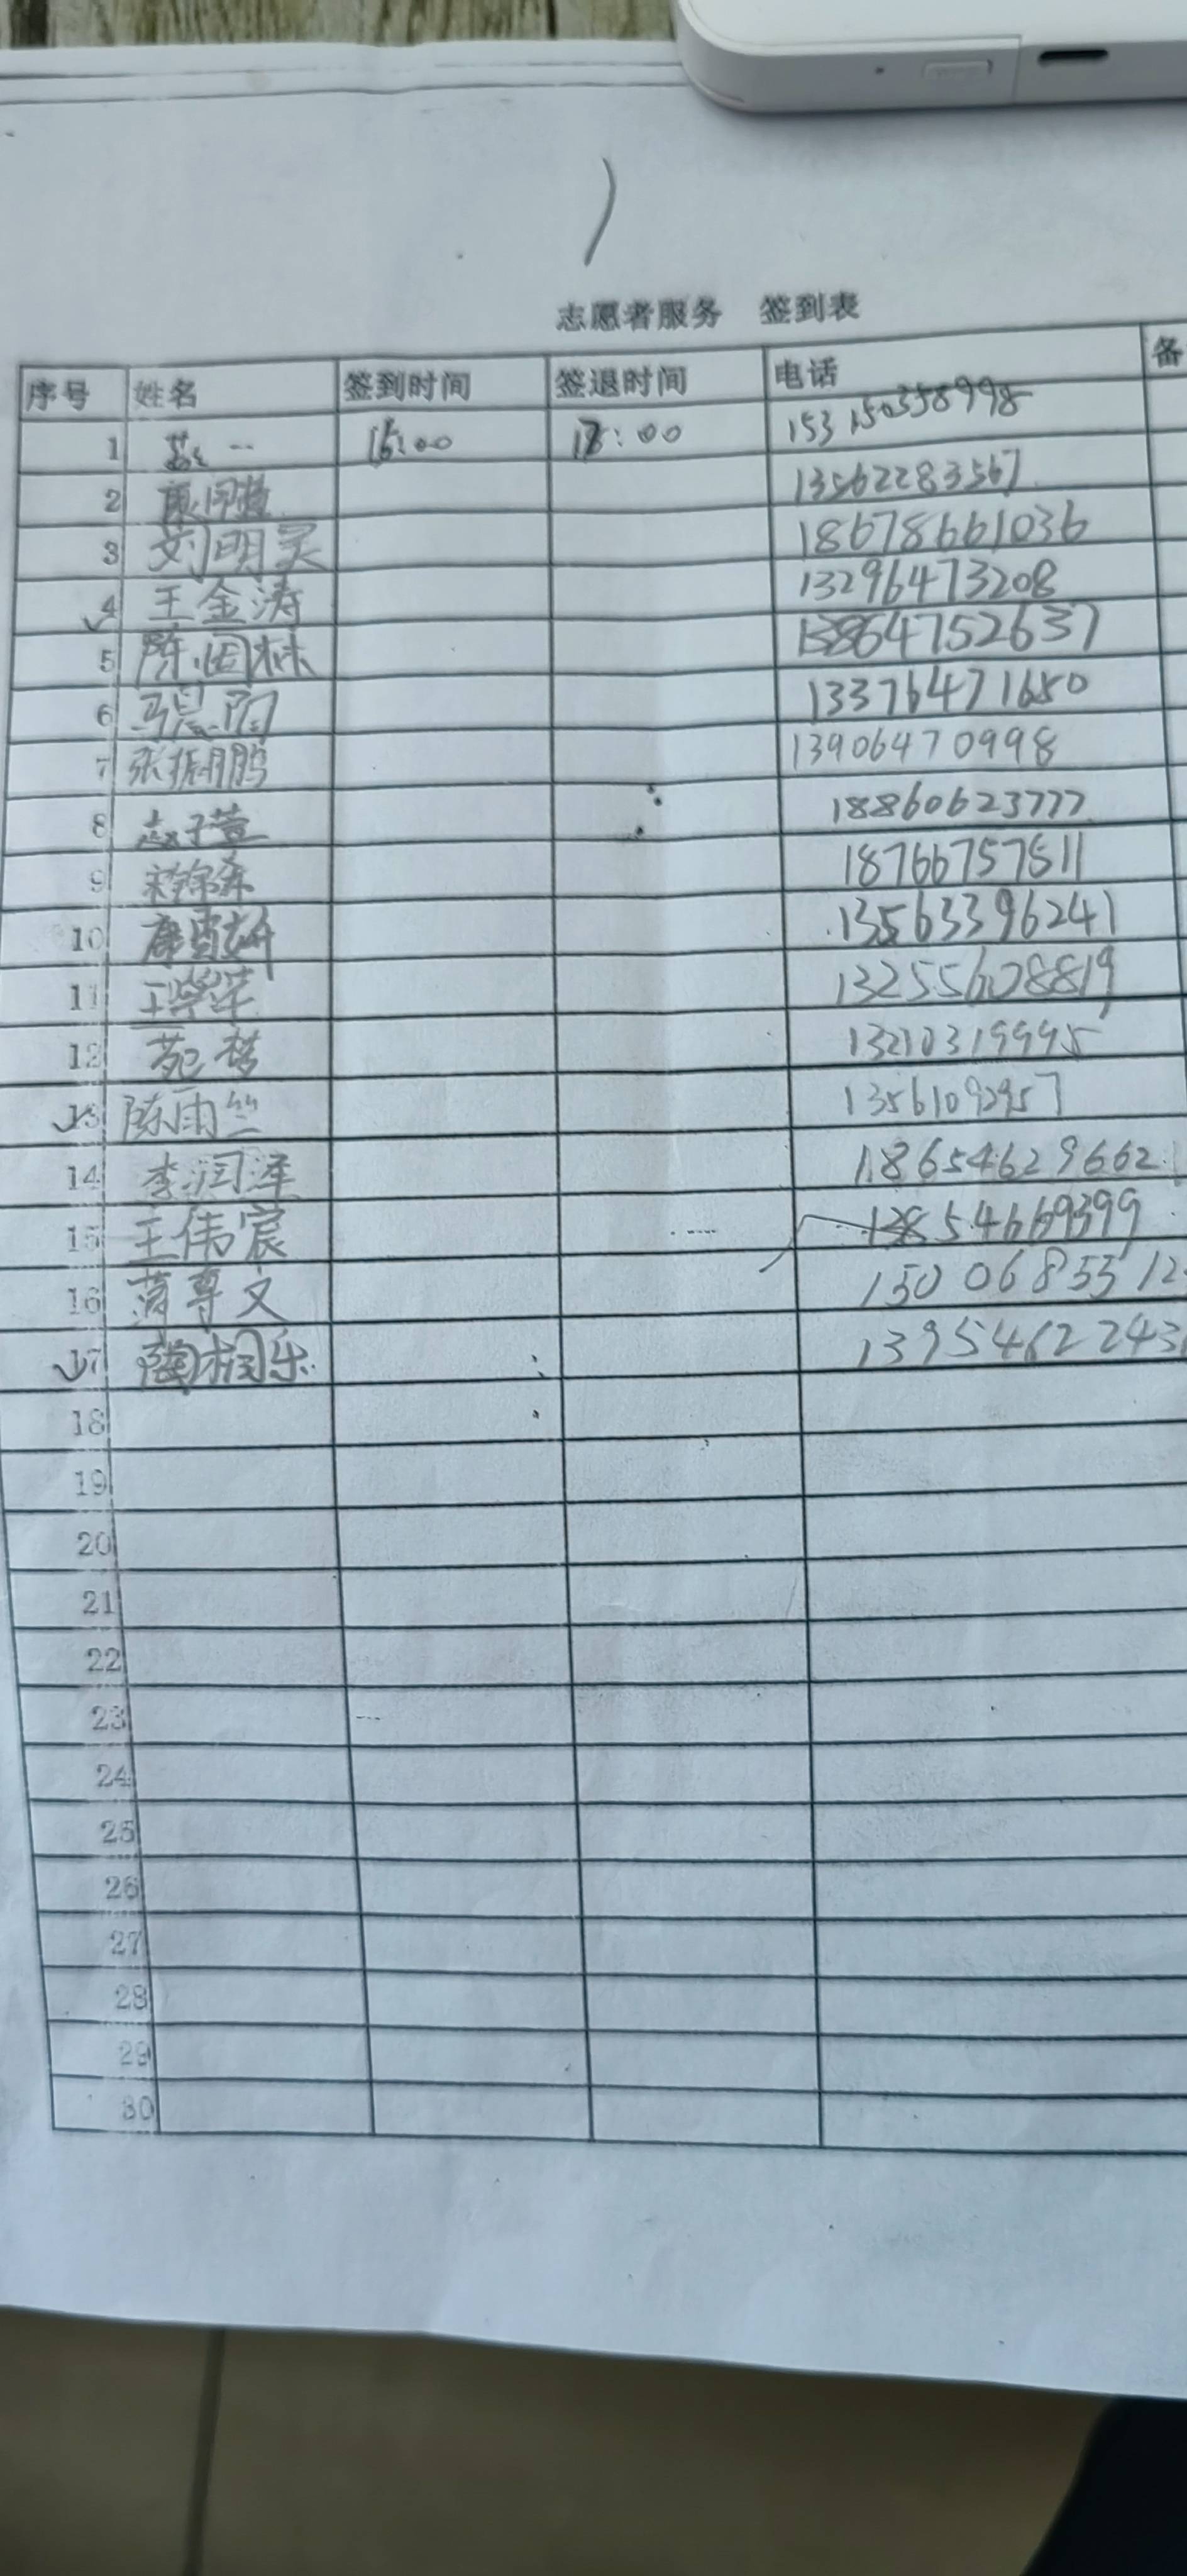 志愿者服务 签到表
序号 姓名 签到时间 签退时间 电话 备
1 :00 :00 153150358998
2 13562283567
3 刘明昊 18678661036
4 王金涛 13296473208
5 陈 13864752637
6 13376471680
7 张振鹏 13906470998
8 赵子萱 18860623777
9 18766757511
10 13563396241
11 王 13255608819
12 苑梦 13210319995
13 陈雨竺 13561092957
14 李润泽 18654629662
15 王伟宸 54669399
16 尊文 150068553 12
17 陶 乐 1395462243
18
19
20
21
22
23
24
25
26
27
28
29
30